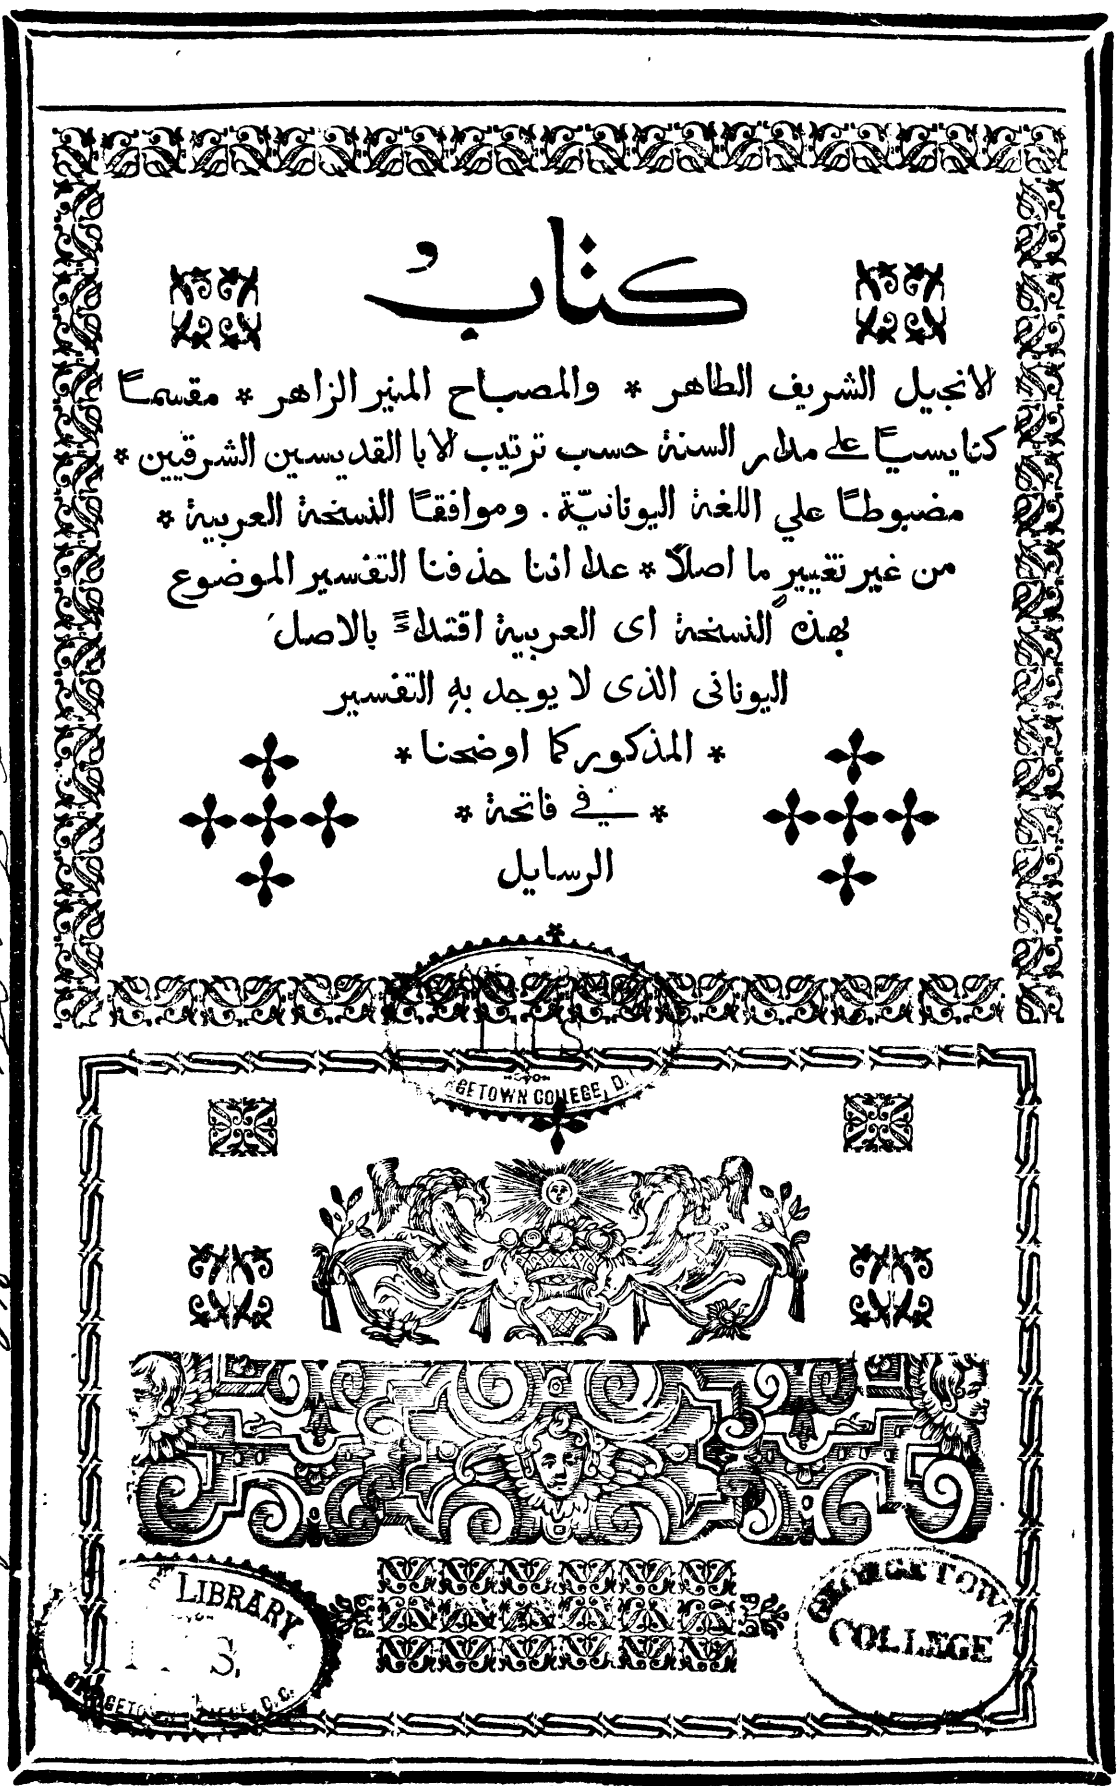 كتاب
الانجيل الشريف الطاهر * والمصباح المنير الزاهر * مقسمًا
كنايسيًا علي مدار السنة حسب ترتيب الابا القديسين الشرقيين *
مضبوطًا علي اللغة اليونانيّة . وموافقًا النسخة العربية *
من غير تغيير ما اصلًا * عدا اننا حذفنا التفسير الموضوع
بهذه النسخة اى العربية اقتداءً بالاصل
اليونانى الذى لا يوجد بهِ التفسير
* المذكور كما اوضحنا *
* في فاتحة *
الرسايل
GETOWN COLLEGE, D.
LIBRARY
GEORGETOWN
COLLEGE